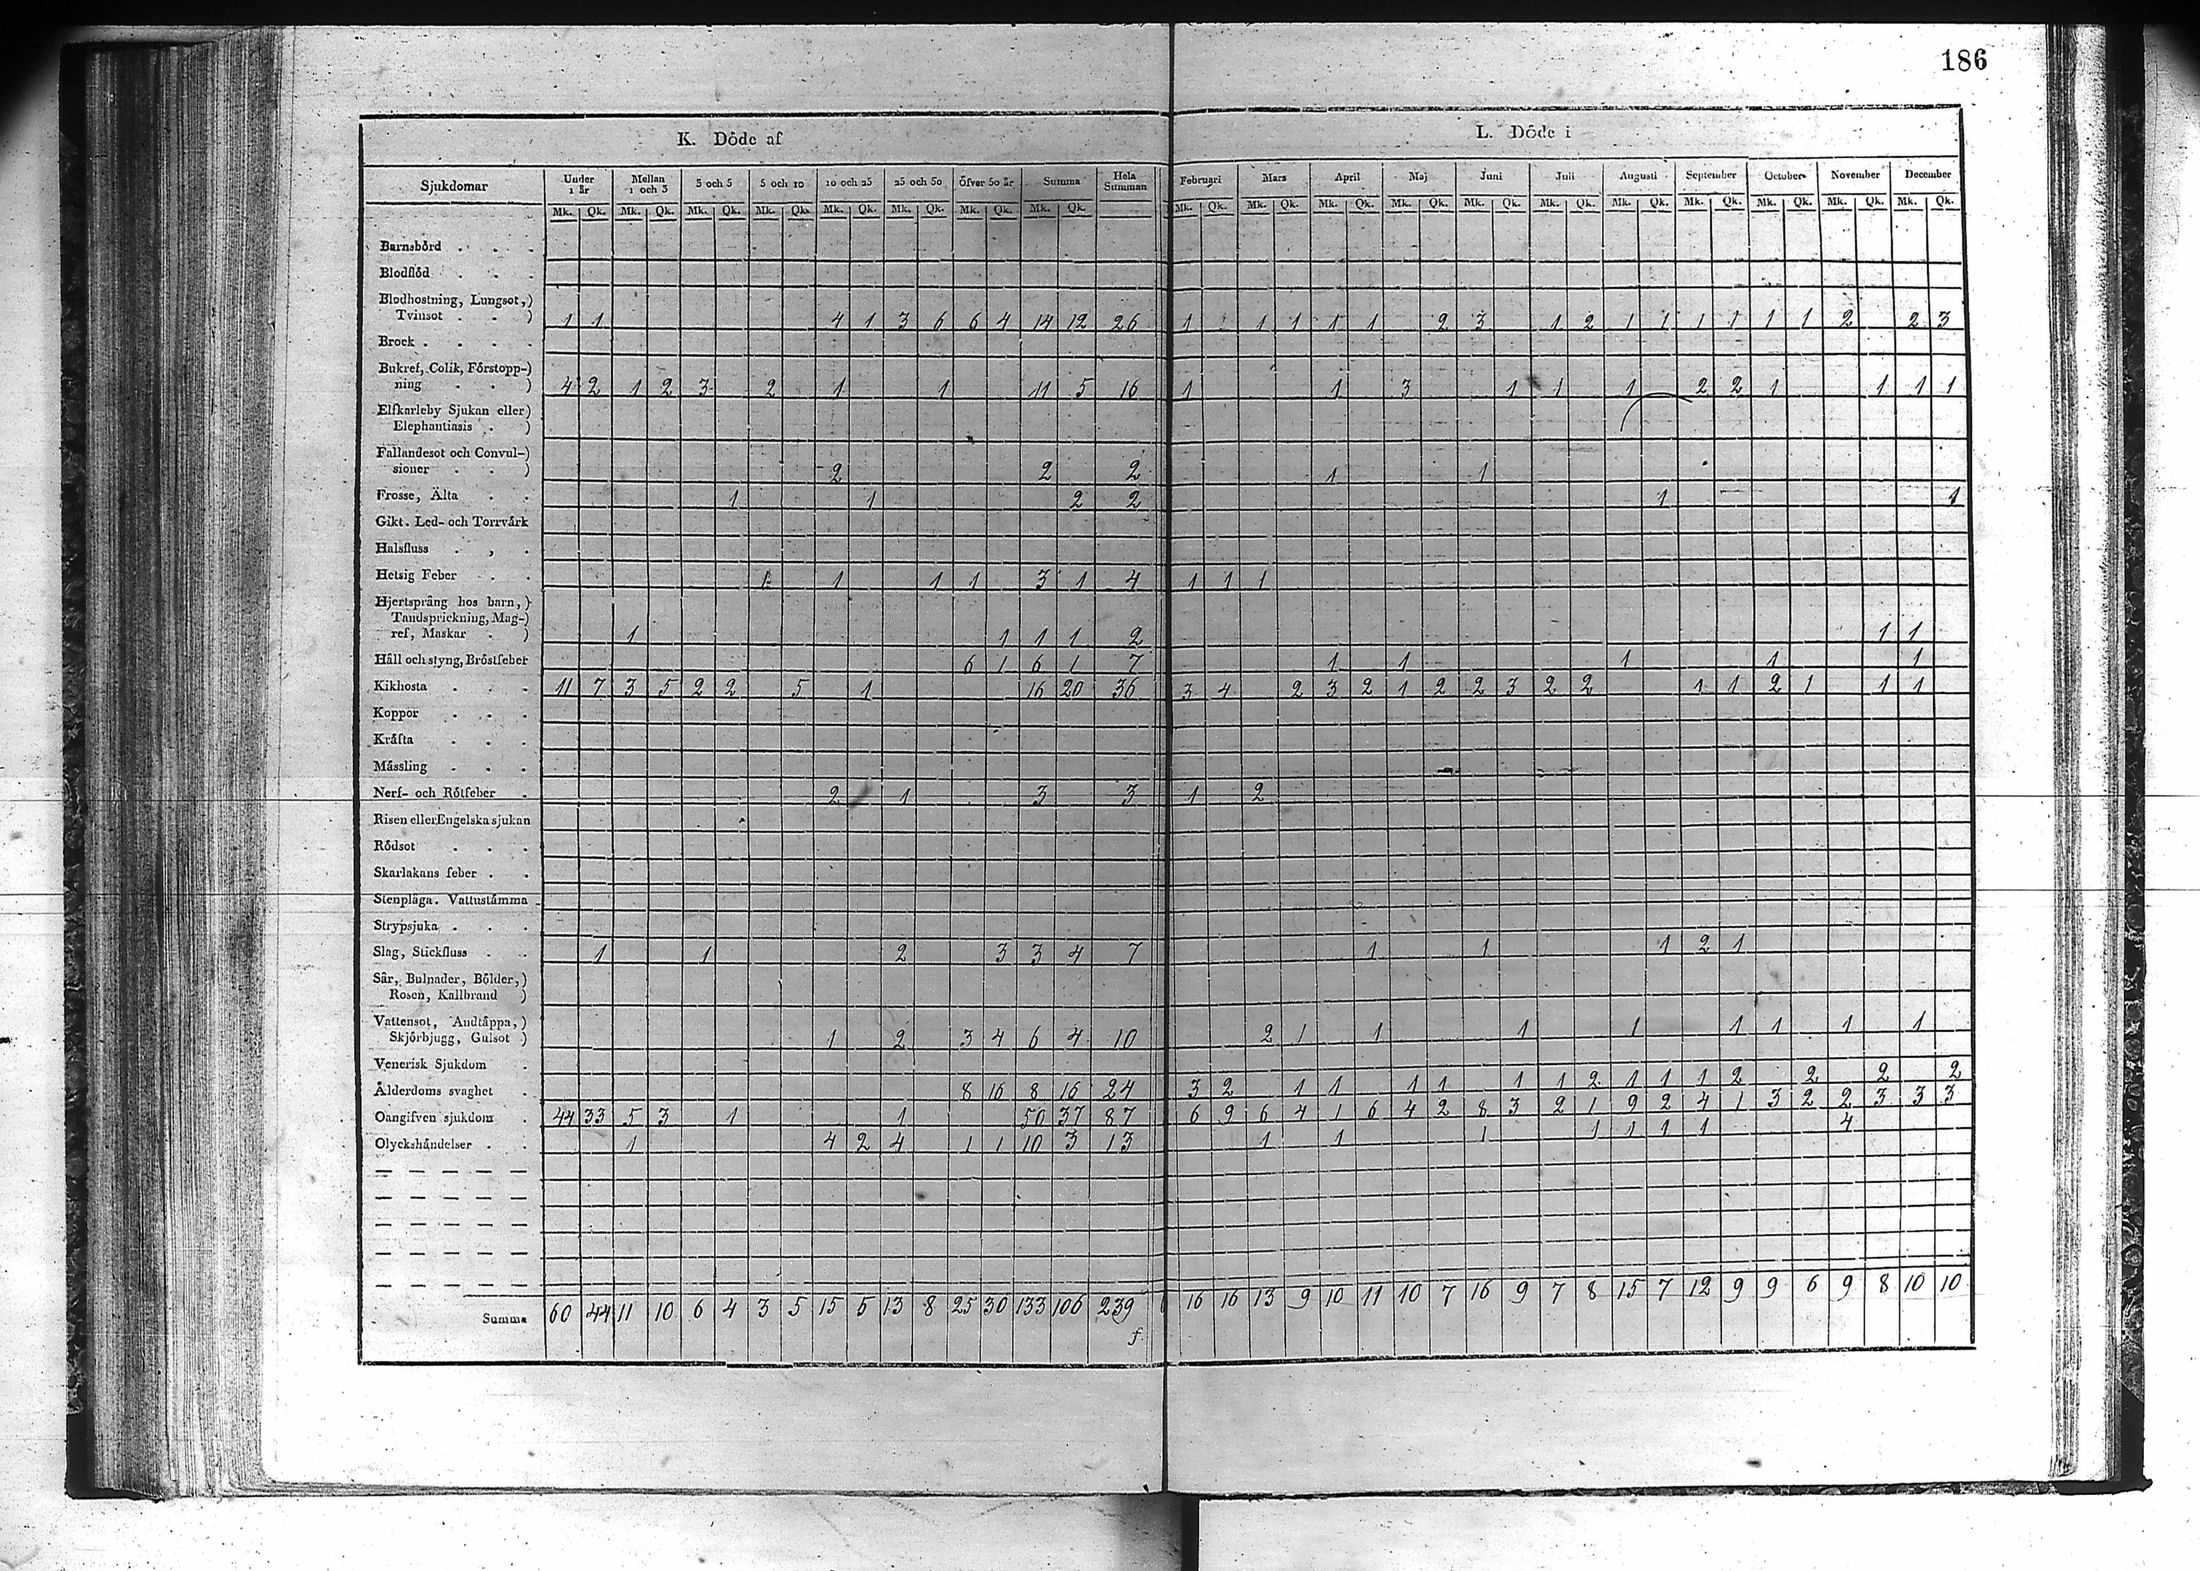 186
K. Döde af
L. Döde i
Sjukdomar Under 1 år Mellan 1 och 3 3 och 5 5 och 10 10 och 25 25 och 50 Öfver 50 år Summa Hela Summan Februari Mars April Maj Juni Juli Augusti September October November December
Mk. Qk. Mk. Qk. Mk. Qk. Mk. Qk. Mk. Qk. Mk. Qk. Mk. Qk. Mk. Qk. Mk. Qk. Mk. Qk. Mk. Qk. Mk. Qk. Mk. Qk. Mk. Qk. Mk. Qk. Mk. Qk. Mk. Qk. Mk. Qk. Mk. Qk.
Barnsbörd . . .
Blodflöd . . .
Blodhostning, Lungsot,)
Tvinsot . . ) 1 1 4 1 3 6 6 4 14 12 26 1 1 1 1 1 2 3 1 2 1 1 1 1 1 1 2 2 3
Brock . . . .
Bukref, Colik, Förstopp-)
ning . . ) 4 2 1 2 3 2 1 1 11 5 16 1 1 3 1 1 1 2 2 1 1 1 1
Elfkarleby Sjukan eller)
Elephantiasis . )
Fallandesot och Convul-)
sioner . . ) 2 2 2 1 1
Frosse, Älta . . 1 1 2 2 1 1
Gikt. Led- och Torrvärk
Halsfluss . , .
Hetsig Feber . . 1 1 1 1 3 1 4 1 1 1
Hjertsprång hos barn, )
Tandsprickning, Mag-)
ref, Maskar . ) 1 1 1 1 2 1 1
Håll och styng, Bröstfeber 6 1 6 1 7 1 1 1 1 1
Kikhosta . . . 11 7 3 5 2 2 5 1 16 20 36 3 4 2 3 2 1 2 2 3 2 2 1 1 2 1 1 1
Koppor . . .
Kräfta . . .
Mässling . . .
Nerf- och Rötfeber . 2 1 3 3 1 2
Risen eller Engelska sjukan
Rödsot . . .
Skarlakans feber . .
Stenplåga. Vattustämma
Strypsjuka . . .
Slag, Stickfluss . . 1 1 2 3 3 4 7 1 1 1 2 1
Sår, Bulnader, Bölder,)
Rosen, Kallbrand )
Vattensot, Andtäppa,)
Skjörbjugg, Gulsot ) 1 2 3 4 6 4 10 2 1 1 1 1 1 1 1 1
Venerisk Sjukdom .
Ålderdoms svaghet . 8 16 8 16 24 3 2 1 1 1 1 1 1 2 1 1 1 2 2 2 2
Oangifven sjukdom . 44 33 5 3 1 1 50 37 87 6 9 6 4 1 6 4 2 8 3 2 1 9 2 4 1 3 2 2 3 3 3
Olyckshändelser . . 1 4 2 4 1 1 10 3 13 1 1 1 1 1 1 1 4
Summa 60 44 11 10 6 4 3 5 15 5 13 8 25 30 133 106 239 16 16 13 9 10 11 10 7 16 9 7 8 15 7 12 9 9 6 9 8 10 10
f